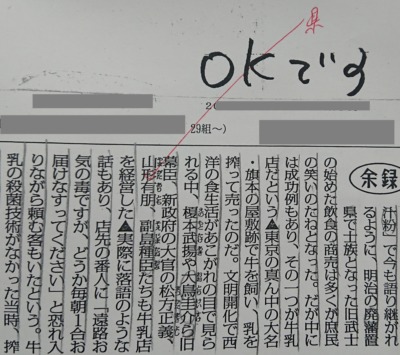 県
OKです
29組～)
余録
汁粉」で今も語り継がれ
るように、明治の廃藩置
県で士族となった旧武士
の始めた飲食の商売は多くが庶民
の笑いのたねとなった。だが中に
は成功例もあり、その一つが牛乳
店だという▲東京の真ん中の大名
・旗本の屋敷跡で牛を飼い、乳を
搾って売ったのだ。文明開化で西
洋の食生活があこがれの目で見ら
れる中、榎本武揚や大鳥圭介ら旧
幕臣、新政府の大官の松方正義、
山形有朋、副島種臣たちも牛乳店
を経営した▲実際に落語のような
話もあり、店先の番人に「遠路お
気の毒ですが、どうか毎朝1合お
届けなすってください」と恐れ入
りながら頼む客もいたという。牛
乳の殺菌技術がなかった当時、搾